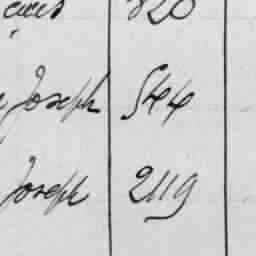 820
Joseph 544
Joseph 2119